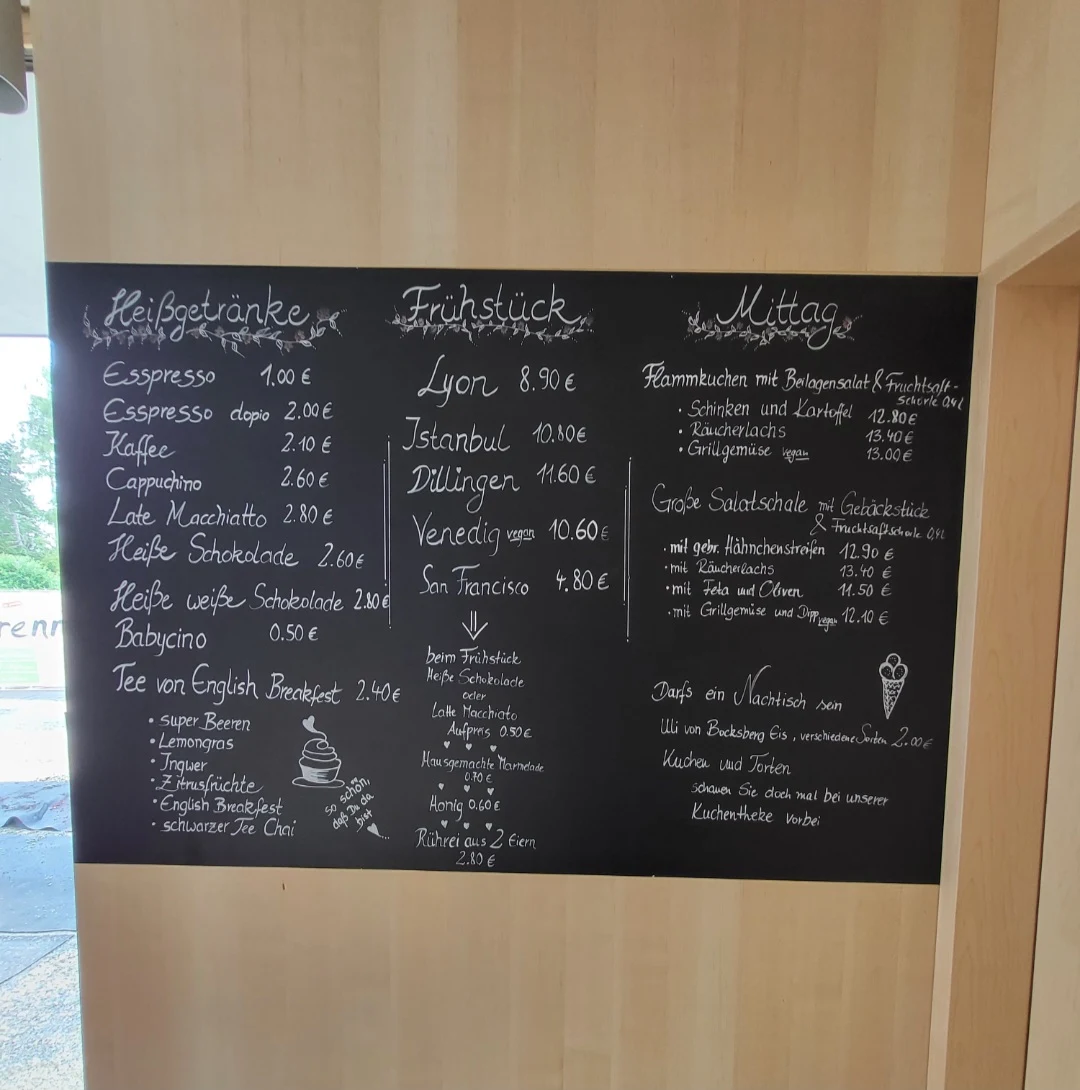 Heißgetränke
Esspresso 1.00 €
Esspresso dopio 2.00€
Kaffee 2.10 €
Cappuchino 2.60 €
Late Macchiatto 2.80 €
Heiße Schokolade 2.60€
Heiße weiße Schokolade 2.80€
Babycino 0.50 €
Tee von English Breakfest 2.40€
• super Beeren
• Lemongras
• Ingwer
• Zitrusfrüchte
• English Breakfest
• schwarzer Tee Chai
so schön,
daß Du da
bist
Frühstück
Lyon 8.90 €
Istanbul 10.80€
Dillingen 11.60€
Venedig vegan 10.60€
San Francisco 4.80 €
beim Frühstück
Heiße Schokolade
oder
Latte Macchiato
Aufpreis 0.50€
Hausgemachte Marmelade
0.70 €
Honig 0.60€
Rührei aus 2 Eiern
2.80 €
Mittag
Flammkuchen mit Beilagensalat & Fruchtsaft-
schorle 0,4l
• Schinken und Kartoffel 12.80€
• Räucherlachs 13.40€
• Grillgemüse vegan 13.00€
Große Salatschale mit Gebäckstück
& Fruchtsaftschorle 0,4l
• mit gebr. Hähnchenstreifen 12.90 €
• mit Räucherlachs 13.40 €
• mit Feta und Oliven 11.50 €
• mit Grillgemüse und Dipp vegan 12.10 €
Darfs ein Nachtisch sein
Uli von Bocksberg Eis, verschiedene Sorten 2.00€
Kuchen und Torten
schauen Sie doch mal bei unserer
Kuchentheke vorbei